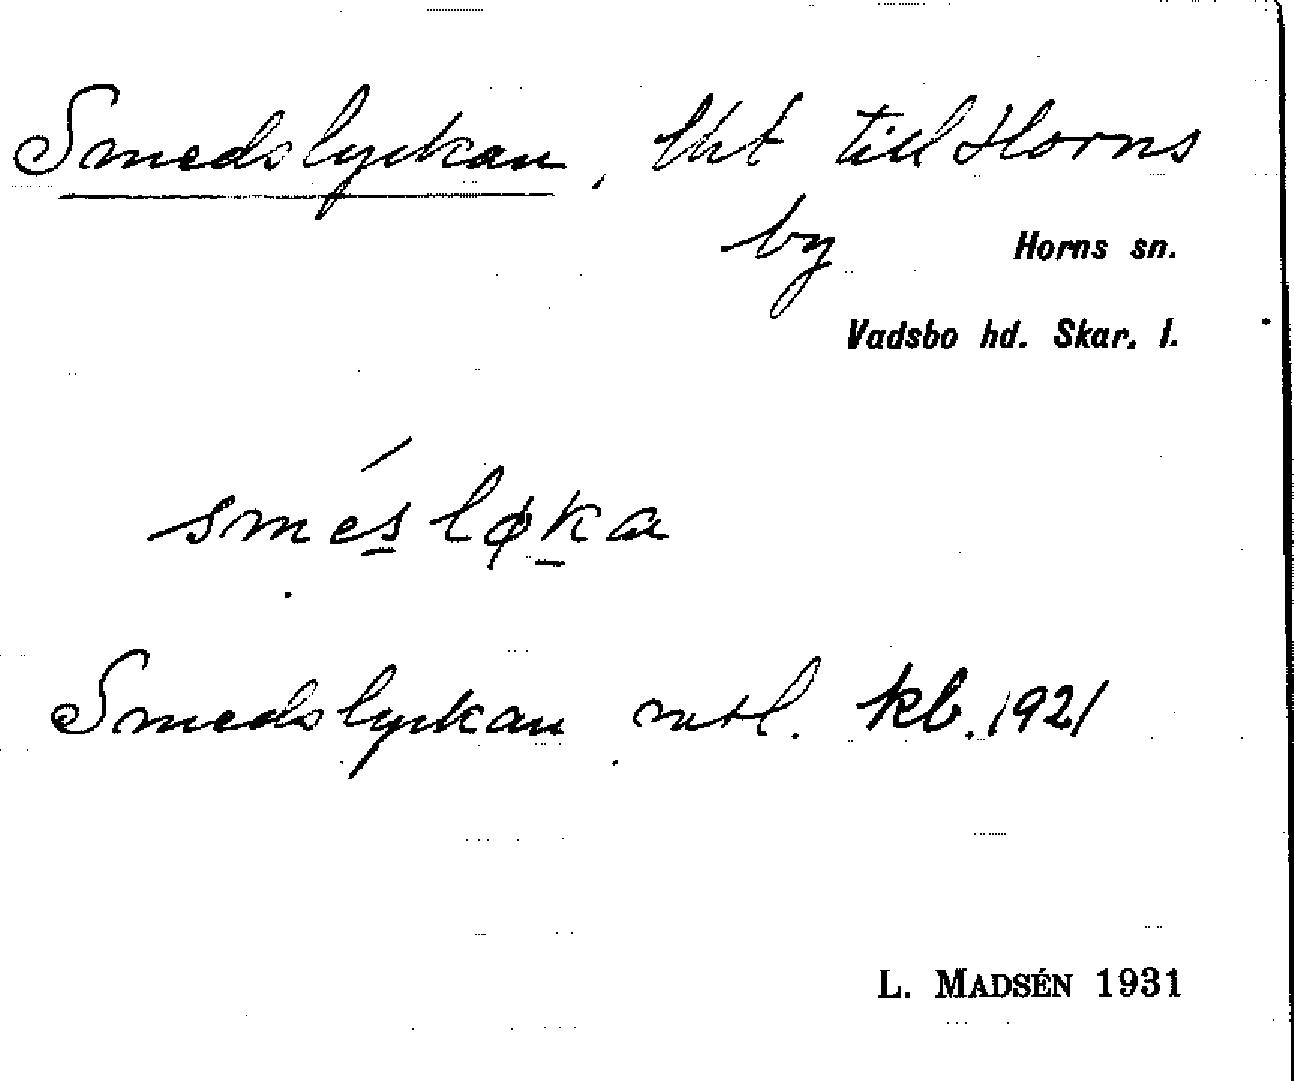 Smedslyckan, lht till Horns
by Horns sn.
Vadsbo hd. Skar. l.
smésløka
Smedslyckan mtl. kb. 1921
L. MADSÉN 1931